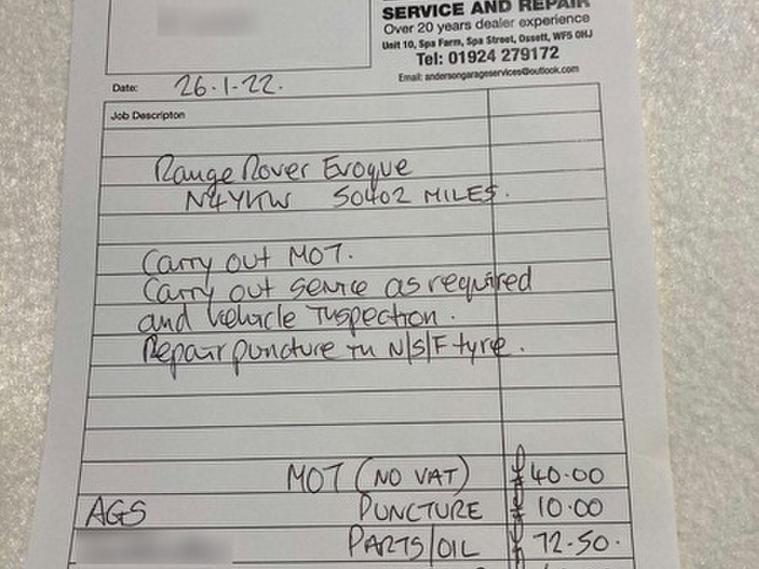 SERVICE AND REPAIR
Over 20 years dealer experience
Unit 10, Spa Farm, Spa Street, Ossett, WF5 0HJ
Tel: 01924 279172
Email: andersongarageservices@outlook.com
Date: 26·1·22.
Job Descripton
Range Rover Evoque
N4YKW 50402 MILES.
Carry out MOT.
Carry out service as required
and vehicle Inspection.
Repair puncture in N/S/F tyre.
MOT (NO VAT) £40·00
AGS PUNCTURE £10·00
PARTS/OIL £72·50·